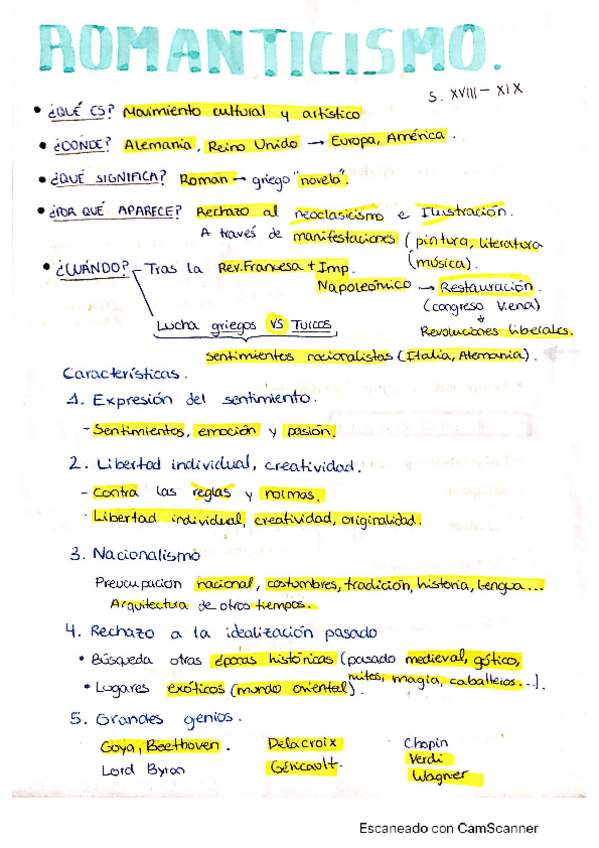 ROMANTICISMO.
S. XVIII - XIX
• ¿QUÉ ES? Movimiento cultural y artístico
• ¿DÓNDE? Alemania, Reino Unido → Europa, América.
• ¿QUÉ SIGNIFICA? Roman → griego "novela".
• ¿POR QUÉ APARECE? Rechazo al neoclasicismo e Ilustración.
A través de manifestaciones (pintura, literatura
(música).
• ¿CUÁNDO? - Tras la Rev.Francesa + Imp.
Napoleónico → Restauración.
(congreso Viena)
Lucha griegos VS Turcos
Revoluciones liberales.
sentimientos nacionalistas (Italia, Alemania).
Características.
1. Expresión del sentimiento.
- Sentimientos, emoción y pasión.
2. Libertad individual, creatividad.
- Contra las reglas y normas.
- Libertad individual, creatividad, originalidad.
3. Nacionalismo
Preocupacion nacional, costumbres, tradición, historia, Lengua...
Arquitectura de otros tiempos.
4. Rechazo a la idealización pasado
• Búsqueda otras épocas históricas (pasado medieval, gótico,
mitos, magia, caballeros...).
• Lugares exóticos (mundo oriental).
5. Grandes genios.
Goya, Beethoven. Delacroix Chopin
Lord Byron Géricault. Verdi
Wagner
Escaneado con CamScanner